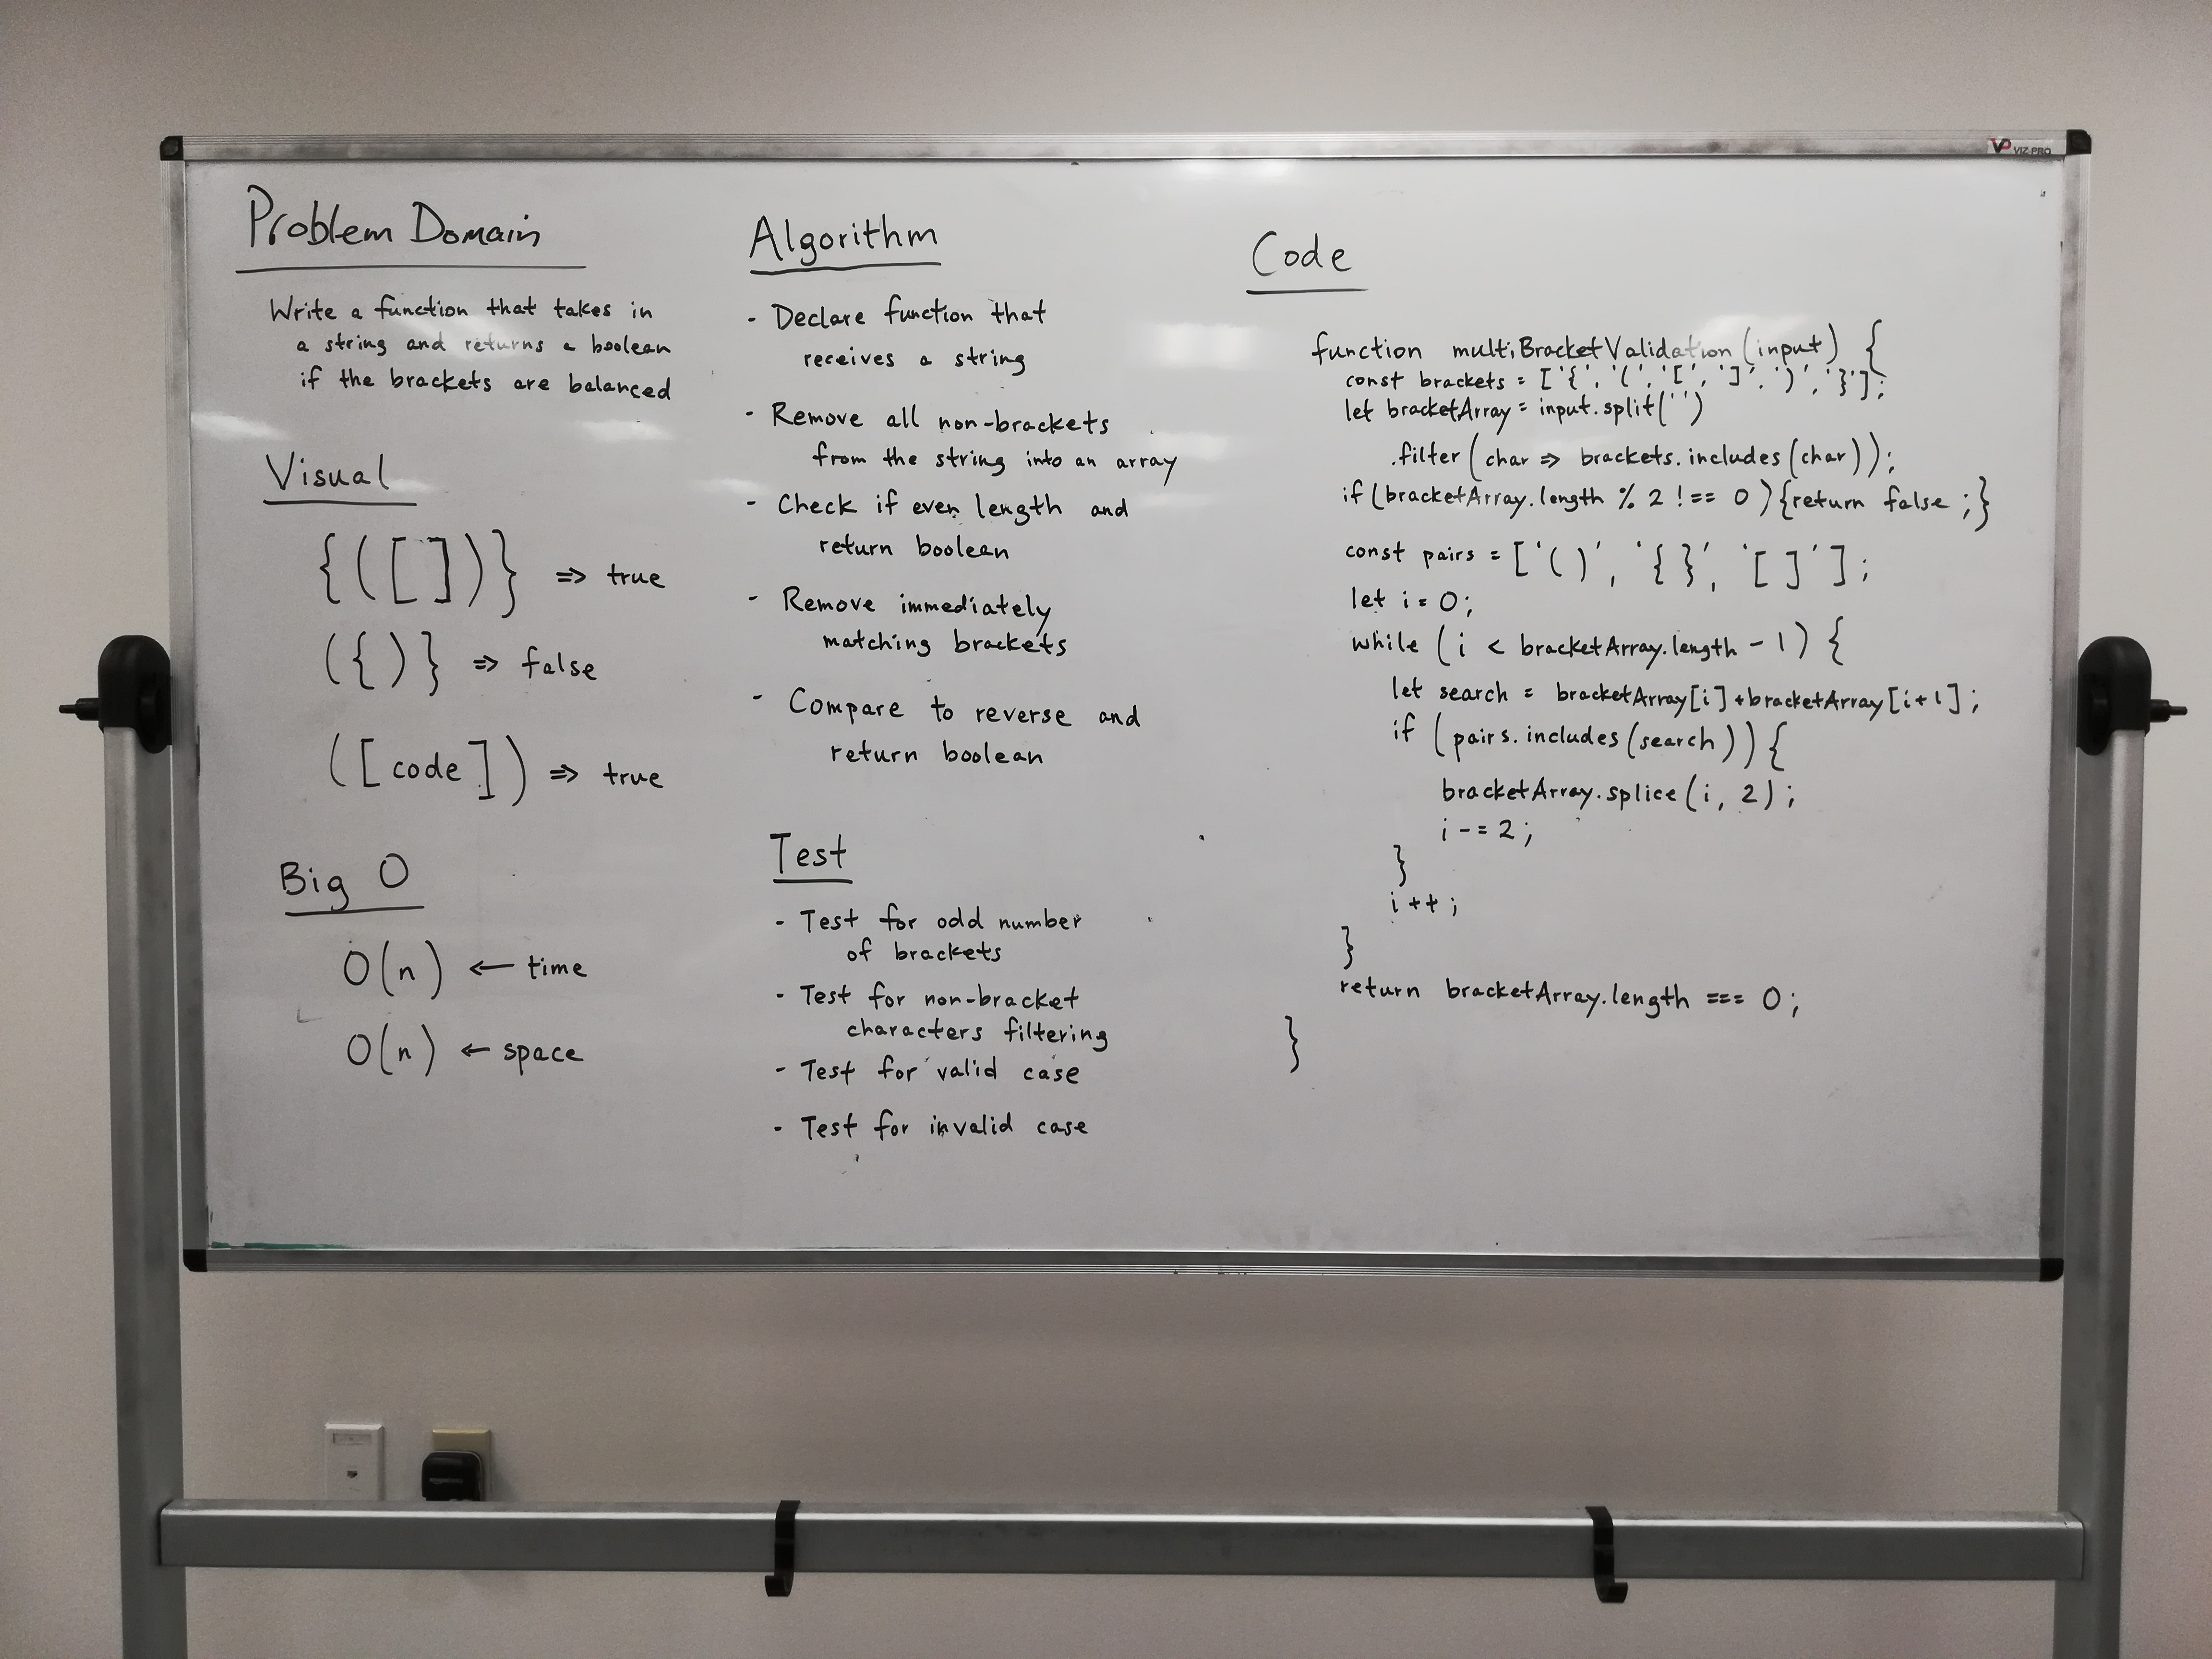 VP VIZ-PRO
Problem Domain
Write a function that takes in
a string and returns a boolean
if the brackets are balanced
Visual
{([])} => true
({)} => false
([code]) => true
Big O
O(n) ← time
O(n) ← space
Algorithm
- Declare function that
receives a string
- Remove all non-brackets
from the string into an array
- Check if even length and
return boolean
- Remove immediately
matching brackets
- Compare to reverse and
return boolean
Test
- Test for odd number
of brackets
- Test for non-bracket
characters filtering
- Test for valid case
- Test for invalid case
Code
function multiBracketValidation(input) {
const brackets = ['{', '(', '[', ']', ')', '}'];
let bracketArray = input.split('')
.filter(char => brackets.includes(char));
if(bracketArray.length % 2 !== 0){return false;}
const pairs = ['()', '{}', '[]'];
let i = 0;
while (i < bracketArray.length - 1) {
let search = bracketArray[i]+bracketArray[i+1];
if (pairs.includes(search)) {
bracketArray.splice(i, 2);
i -= 2;
}
i++;
}
return bracketArray.length === 0;
}